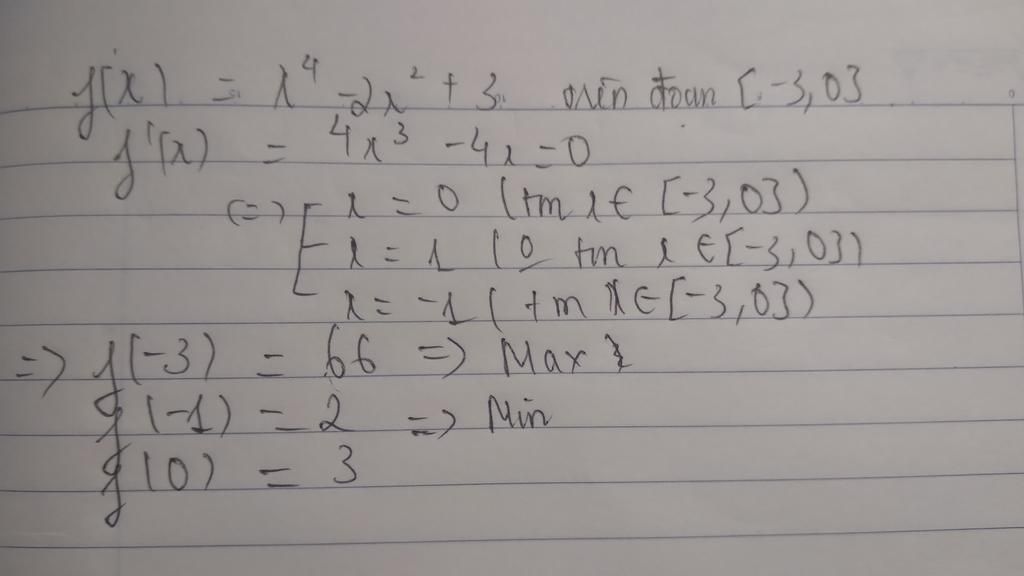 f(x) = x⁴ - 2x² + 3 trên đoạn [-3,0]
f'(x) = 4x³ - 4x = 0
(=) [ x = 0 (tm x ∈ [-3,0])
x = 1 (0 tm x ∈ [-3,0])
x = -1 (tm x ∈ [-3,0])
=> f(-3) = 66 => Max
f(-1) = 2 => Min
f(0) = 3